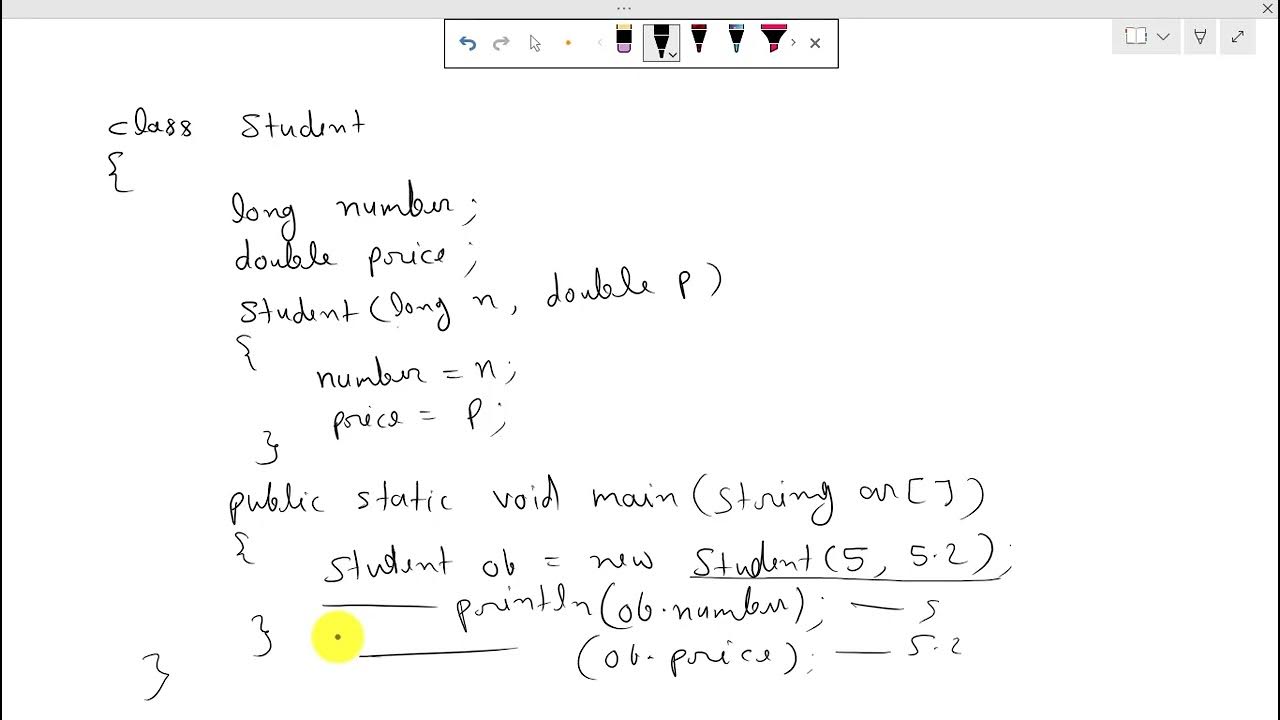 class Student
{
long number;
double price;
Student(long n, double p)
{
number = n;
price = p;
}
public static void main(String ar[])
{
Student ob = new Student(5, 5.2);
println(ob.number); — 5
}
(ob.price); — 5.2
}